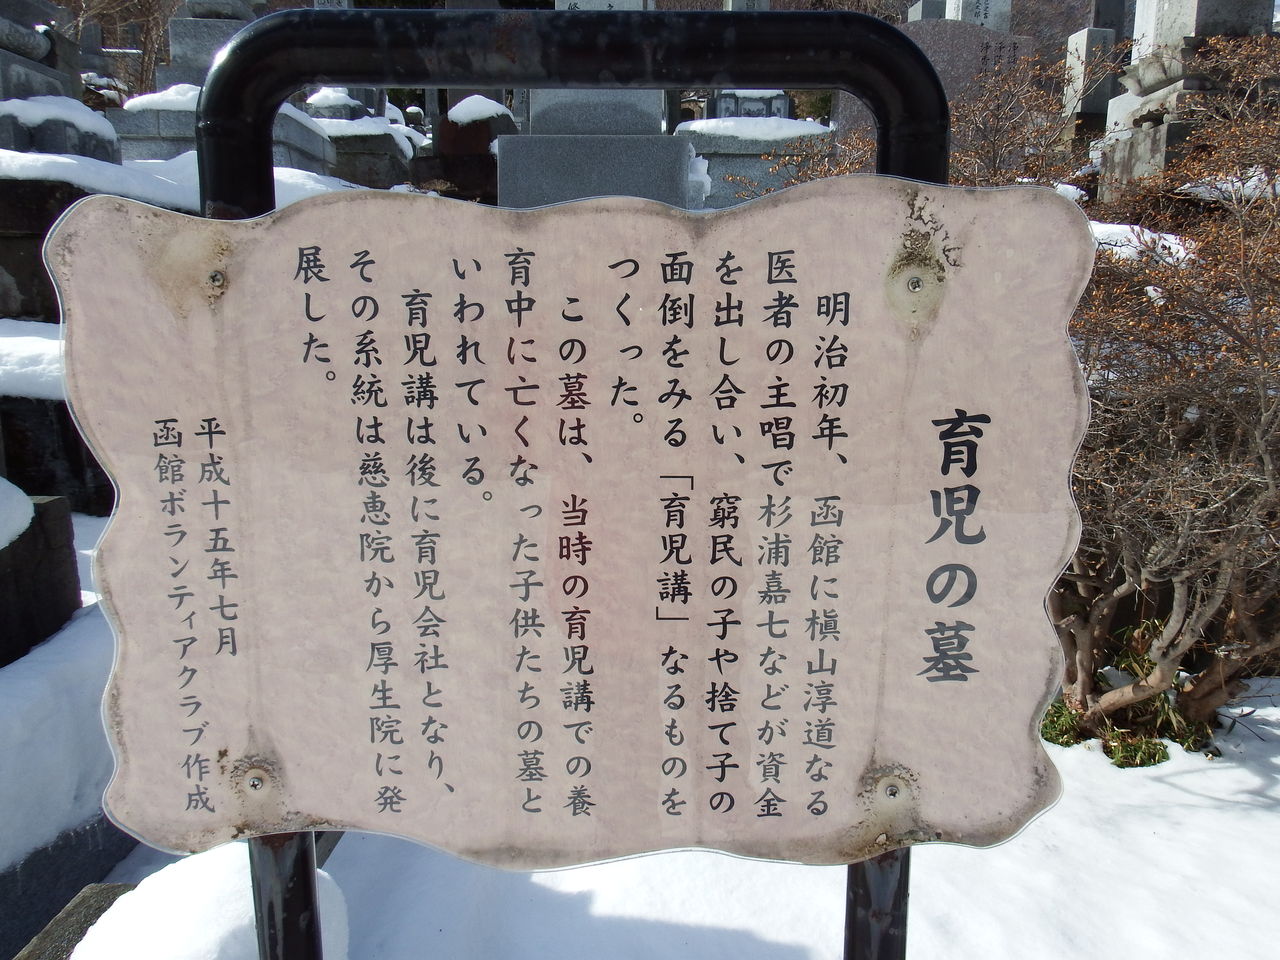 育児の墓
明治初年、函館に槇山淳道なる
医者の主唱で杉浦嘉七などが資金
を出し合い、窮民の子や捨て子の
面倒をみる「育児講」なるものを
つくった。
この墓は、当時の育児講での養
育中に亡くなった子供たちの墓と
いわれている。
育児講は後に育児会社となり、
その系統は慈恵院から厚生院に発
展した。
平成十五年七月
函館ボランティアクラブ作成